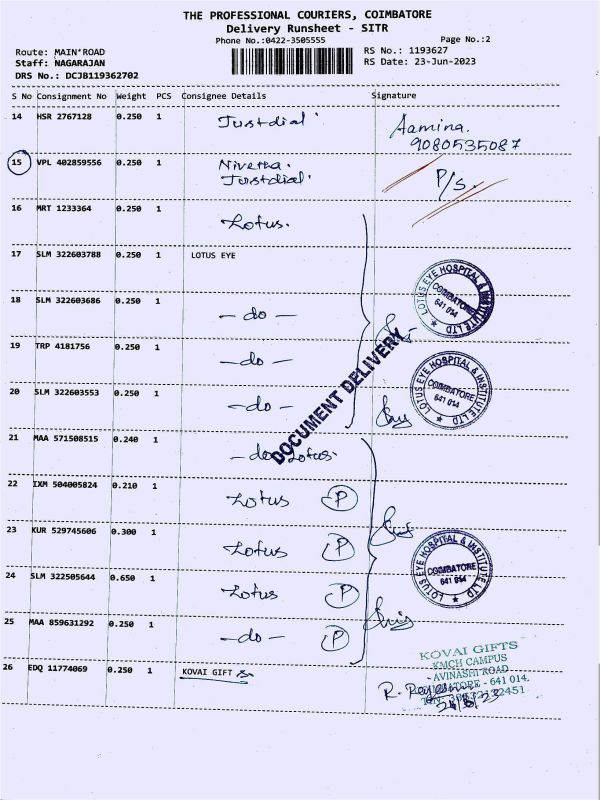 THE PROFESSIONAL COURIERS, COIMBATORE
Delivery Runsheet - SITR
Phone No.:0422-3505555 Page No.:2
Route: MAIN*ROAD RS No.: 1193627
Staff: NAGARAJAN RS Date: 23-Jun-2023
DRS No.: DCJB119362702
S No Consignment No Weight PCS Consignee Details Signature
14 HSR 2767128 0.250 1 Justdial Aamina.
9080535087
15 VPL 402859556 0.250 1 Nivetha.
Justdial P/s.
16 MRT 1233364 0.250 1 Lotus.
17 SLM 322603788 0.250 1 LOTUS EYE
LOTUS EYE HOSPITAL & INSTITUTE LTD
COIMBATORE
641 014
18 SLM 322603686 0.250 1 -do-
DOCUMENT DELIVERY
19 TRP 4181756 0.250 1 -do-
20 SLM 322603553 0.250 1 -do-
LOTUS EYE HOSPITAL & INSTITUTE LTD
COIMBATORE
641 014
21 MAA 571508515 0.240 1 -do- Lotus.
22 IXM 504005824 0.210 1 Lotus P
23 KUR 529745606 0.300 1 Lotus P
24 SLM 322505644 0.650 1 Lotus P
LOTUS EYE HOSPITAL & INSTITUTE LTD
COIMBATORE
641 014
25 MAA 859631292 0.250 1 -do- P
26 EDQ 11774069 0.250 1 KOVAI GIFT s
KOVAI GIFTS
KMCH CAMPUS
AVINASHI ROAD
COIMBATORE - 641 014.